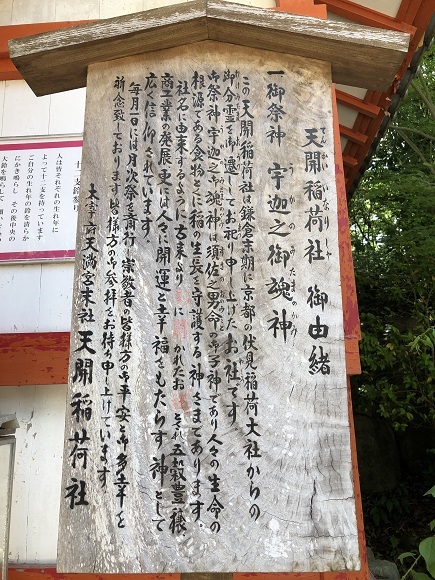 天開稲荷社 御由緒
てんかい いなりしゃ
一御祭神 宇迦之御魂神
うかのみたまのかみ
この天開稲荷社は鎌倉末期に京都の伏見稲荷大社からの
御分霊を御遷してお祀り申し上げたお社です。
御祭神 宇迦之御魂神は須佐之男命の御子神であり人々の生命の
根源である食物とくに稲の生長を守護する神さまであります。
社名に由来するように古来より に かれたお とされ五穀豊穣、
商工業の発展、更には人々に開運と幸福をもたらす神として
広く信仰されています。
毎月一日には月次祭を斎行し崇敬者の皆様方の平安と御多幸を
祈念致しております。皆様方の御参拝をお待ち申し上げています。
太宰府天満宮末社 天開稲荷社
十二支鈴参り
人は皆それぞれの生れ年に
よって十二支を持っています
ご自分の生れ年の鈴を清らか
にかき鳴らし その後中央の
大鈴を鳴らして